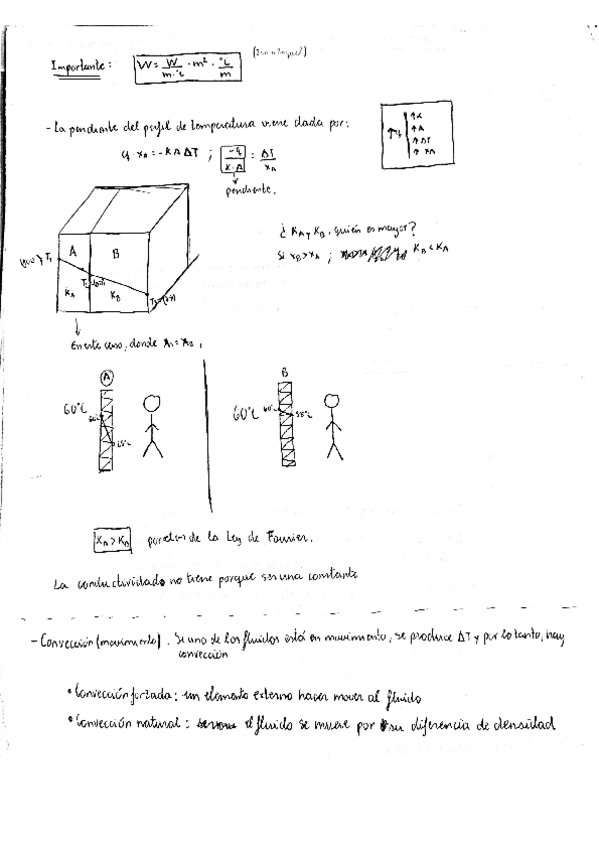 Importante: W = W/m·°C · m² · °C/m
- La pendiente del perfil de temperatura viene dada por:
q · xA = -KAΔT ; -q/K·A = ΔT/xA
pendiente.
↑q ↑K
↑A
↑ΔT
↑xA
¿KA y KB, quién es mayor?
Si xB > xA ; KB < KA
A B
T1
KA KB
En este caso, donde
A B
60°C 60°C
60°C 60°C
KA > KB de la Ley de Fourier.
La conductividad no tiene porque ser una constante
- Convección (movimiento). Si uno de los fluidos está en movimiento, se produce ΔT y por lo tanto, hay
convección
• Convección forzada: un elemento externo hacer mover al fluido
• Convección natural: el fluido se mueve por su diferencia de densidad